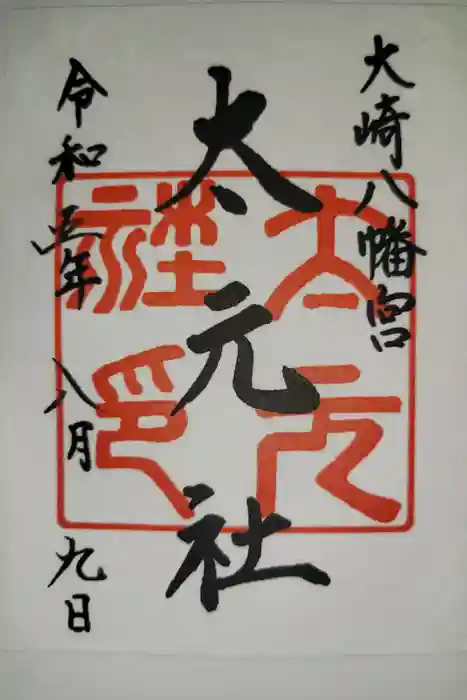 大崎八幡宮
太元社
太元社印
令和五年八月九日